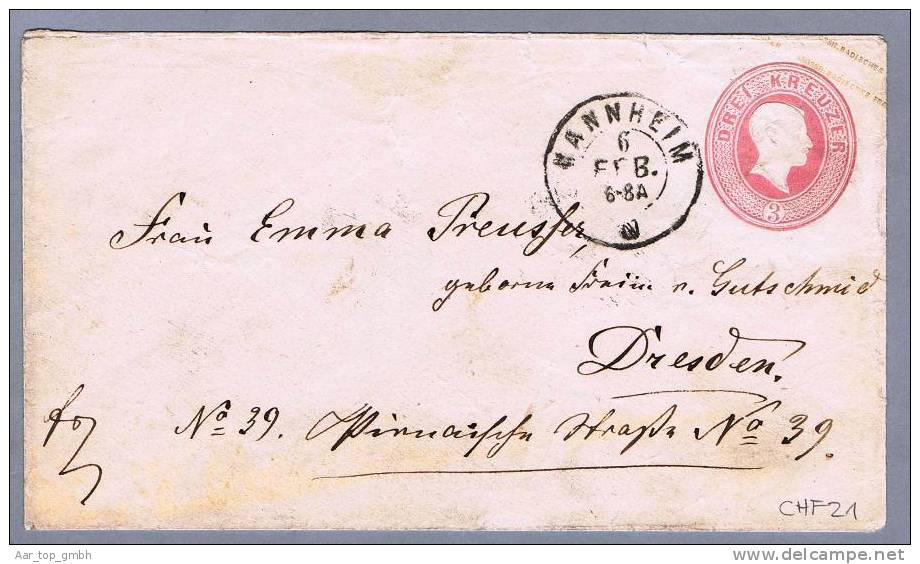 DREI KREUZER
3
MANNHEIM
6
FEB.
6-8A
Frau Emma Preusser,
geborne Freiin v. Gutschmid
Dresden.
No 39. Pirnaische Straße No 39.
CHF 21
Aar_top_gmbh
www.delcampe.net